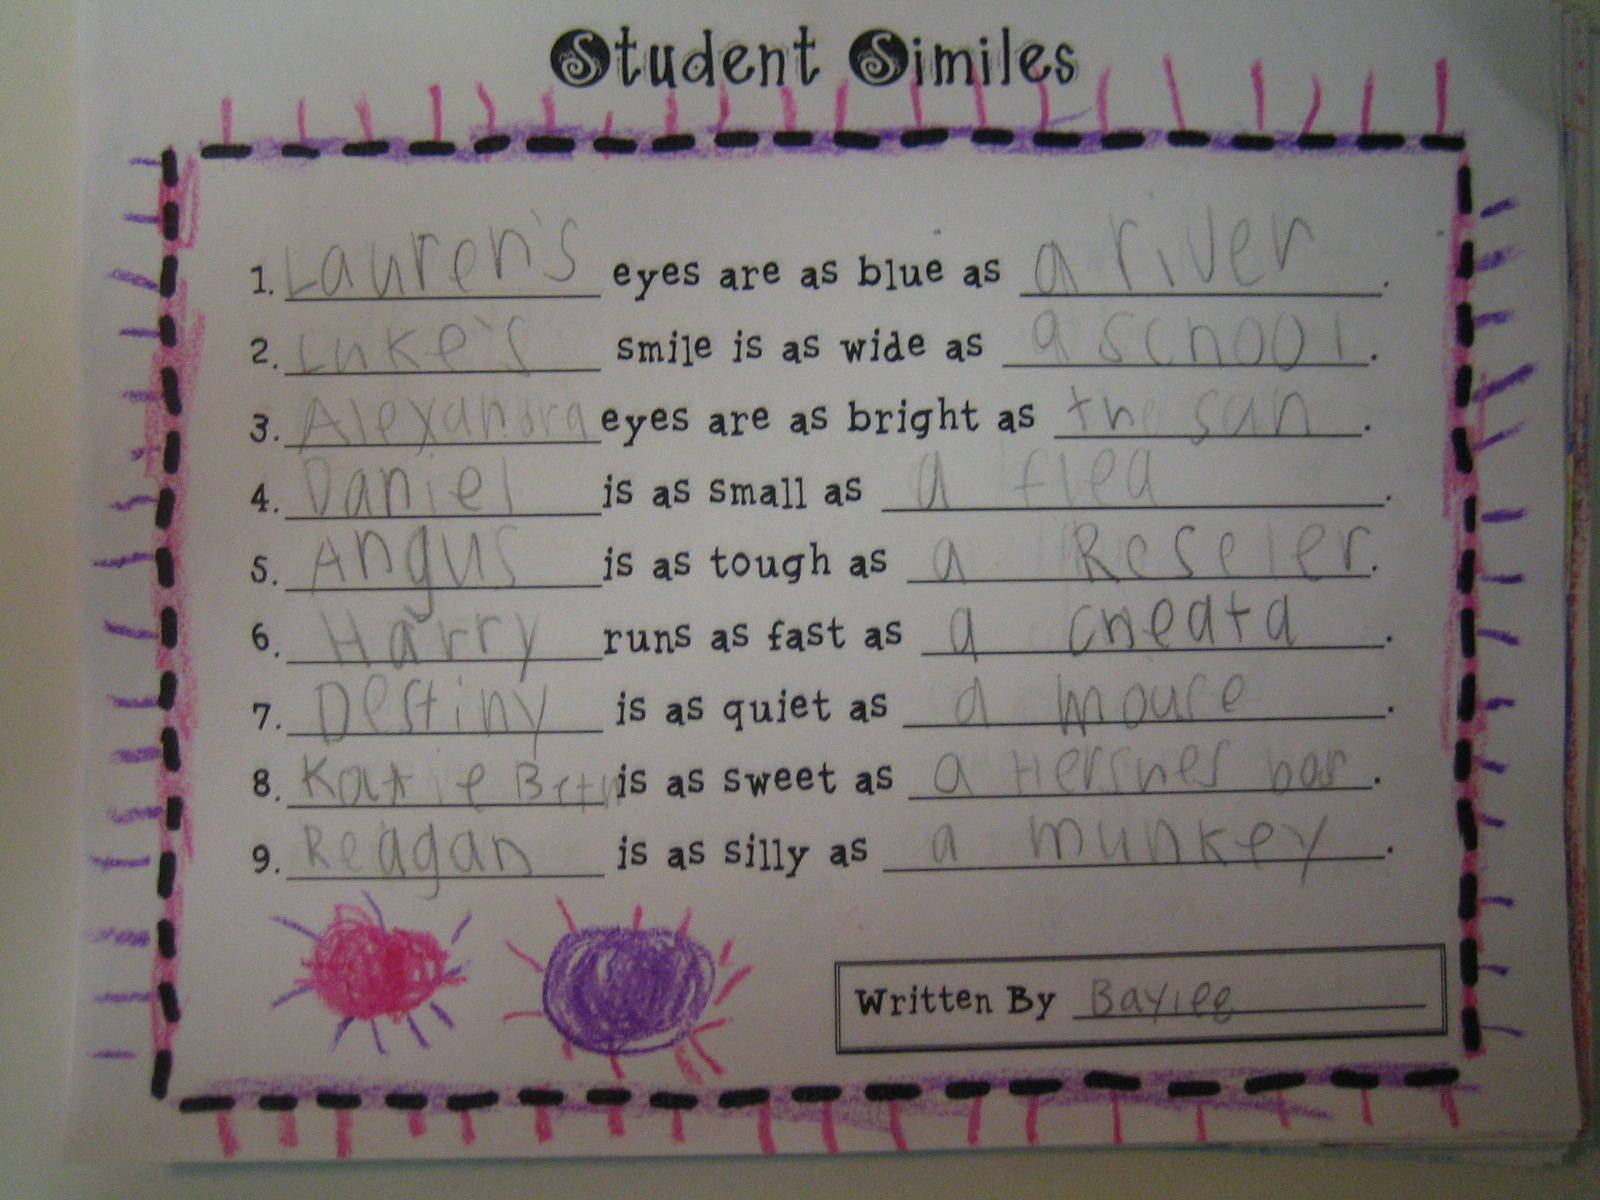 Student Similes
1. Lauren's eyes are as blue as a river.
2. Luke's smile is as wide as a school.
3. Alexandra eyes are as bright as the sun.
4. Daniel is as small as a flea.
5. Angus is as tough as a Reseler.
6. Harry runs as fast as a cheata.
7. Destiny is as quiet as a mouse.
8. Katie Beth is as sweet as a Hershes bar.
9. Reagan is as silly as a munkey.
Written By Baylee